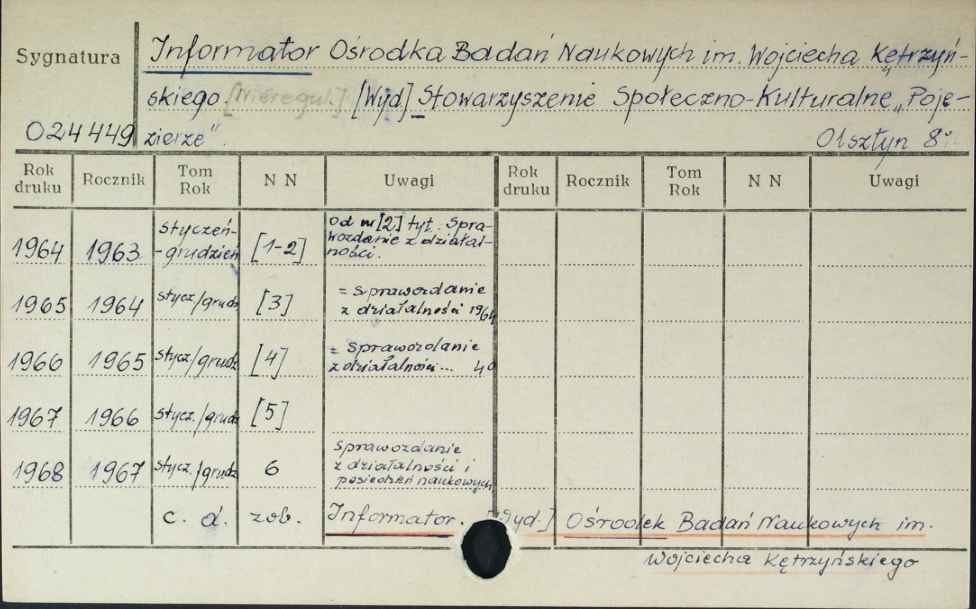 Sygnatura Informator Ośrodka Badań Naukowych im. Wojciecha Kętrzyń-
skiego [Nieregul.] [Wyd] Stowarzyszenie Społeczno-Kulturalne „Poje-
024449 zierze”. Olsztyn 8°
Rok druku Rocznik Tom Rok N N Uwagi Rok druku Rocznik Tom Rok N N Uwagi
1964 1963 styczeń-grudzień [1-2] Od nr [2] tyt. Spra-
wozdanie z działal-
ności.
1965 1964 stycz/grudz [3] = Sprawozdanie
z działalności 1964
1966 1965 stycz/grudz [4] = Sprawozdanie
z działalności...
1967 1966 stycz./grudz [5]
1968 1967 stycz./grudz 6 Sprawozdanie
z działalności i
posiedzeń naukowych
c. d. zob. Informator. [Wyd.] Ośrodek Badań Naukowych im.
Wojciecha Kętrzyńskiego